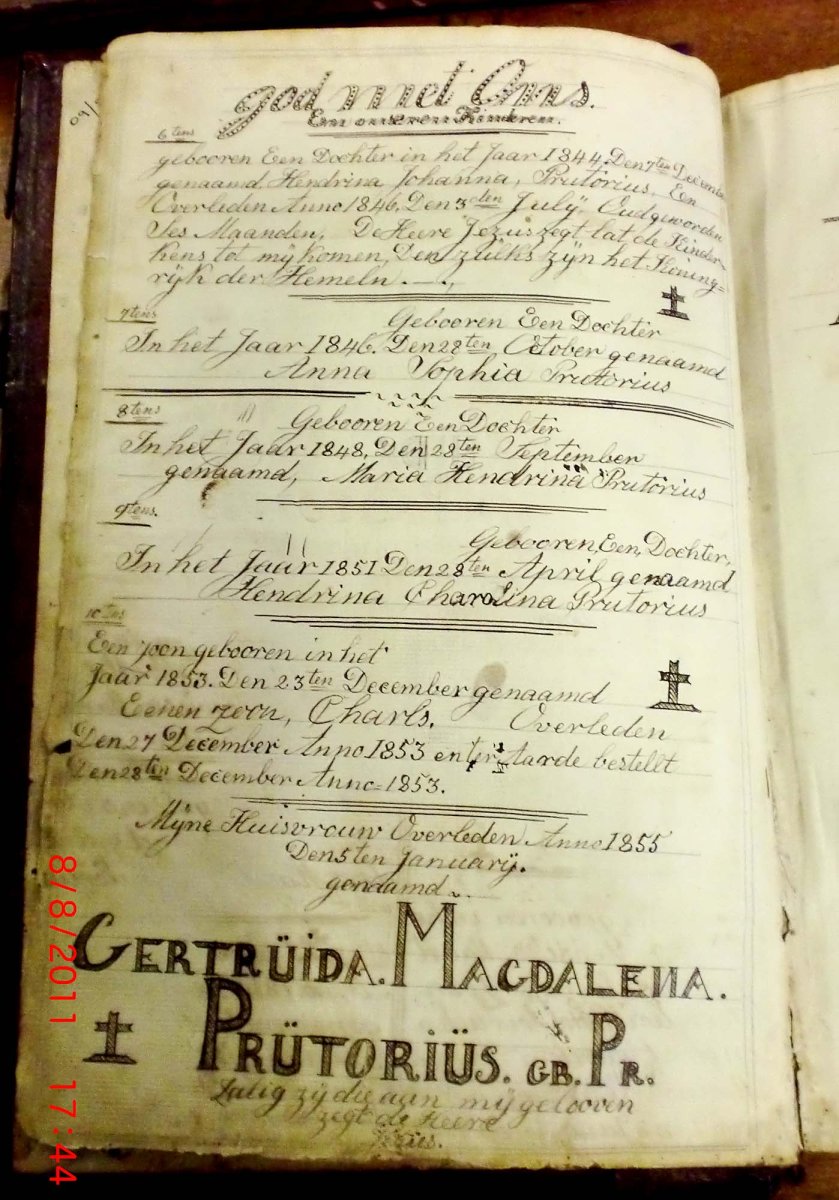 god met Ons.
En onseren Kinderen.
6tens
gebooren Een Dochter in het Jaar 1844, Den 7ten December
genaamd, Hendrina Johanna, Prutorius. Een
Overleden Anno 1846, Den 3den July. Oudgeworden
Ses Maanden. De Heere Jezus zegt lat de Kinder-
kens tot my komen, Den zulks zyn het Koning=
ryk der Hemeln.
7tens
Gebooren Een Dochter
In het Jaar 1846. Den 28ten October genaamd
Anna Sophia Prutorius
8tens
Gebooren Een Dochter
In het Jaar 1848, Den 28ten September
genaamd, Maria Hendrina Prutorius
9tens.
Gebooren, Een, Dochter,
In het Jaar 1851 Den 28ten April genaamd
Hendrina Charolina Prutorius
10tens
Een zoon gebooren in het
Jaar 1853. Den 23ten December genaamd
Eenen zoon, Charls. Overleden
Den 27 December Anno 1853 en ter Aarde bestellt
Den 28ten December Anno=1853.
Myne Huisvrouw Overleden Anno 1855
Den 5ten January.
genaamd
GERTRÜIDA. MAGDALENA.
PRÜTORIÜS. GB. PR.
Zalig zij die aan mij gelooven
zegt de Heere
8/8/2011 17:44